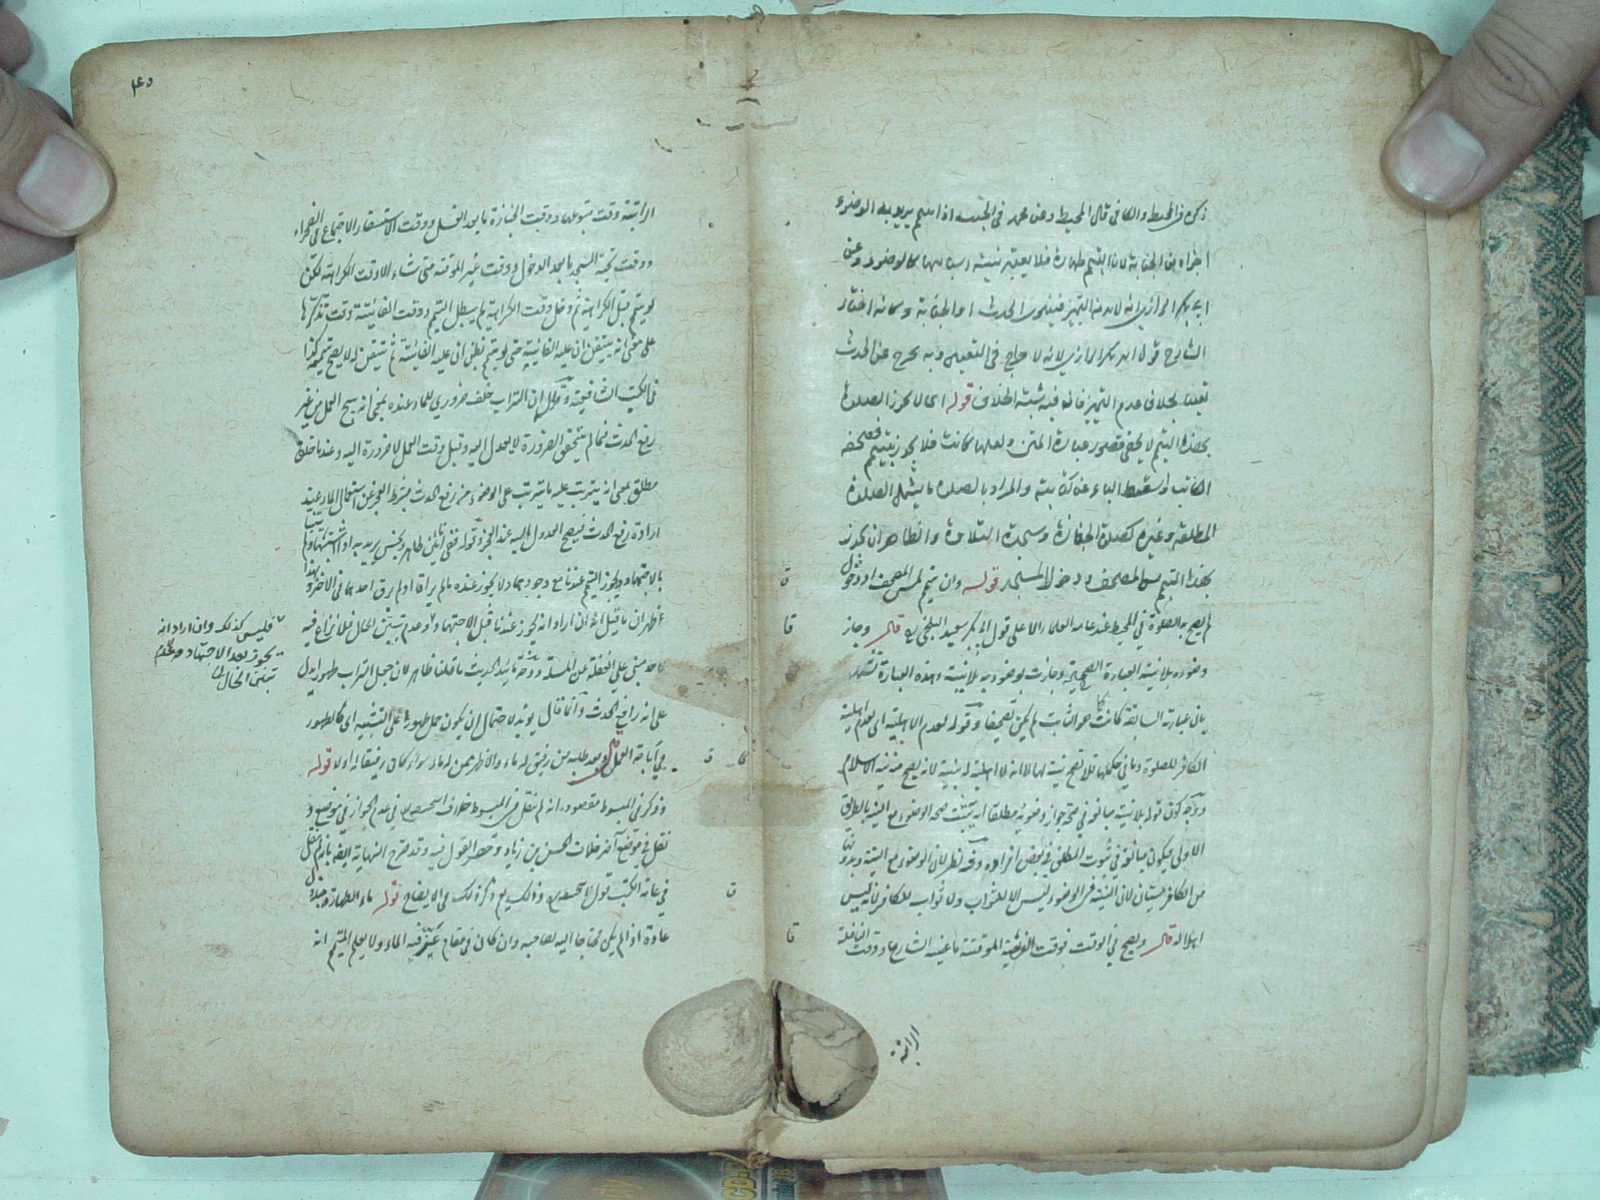 ذكره في المحيط والكافي قال في المحيط وعن محمد في الجنب اذا تيمم يريد به الوضوء
اجزاه عن الجنابة لان التيمم طهارة فلا يعتبر نيته اسبابها كالوضوء وعن
ابي بكر الرازي انه لابد من التمييز فينوي الحدث او الجنابة وكانه اختار
الشارح قول ابي بكر الرازي لانه لا حرج في التعيين وبه يخرج عن الحدث
يقينا بخلاف عدم التمييز فانه فيه شبهة الخلاف قوله اي لا يجوز الصلوة
بهذا التيمم لا يخفى قصور عبارة المتن ولعلها كانت فلا يجوز بتيمم
الكاتب واسقط الباء عن كتابته والمراد بالصلوة ما يشمل الصلوة
المطلقة وغيره كصلوة الجنازة وسجدة التلاوة والظاهر ان يجوز
بهذا التيمم مس المصحف ودخول المسجد قوله وان تيمم لمس المصحف او دخول
لم يصح به الصلوة في المحيط عند عامة العلماء الا على قول ابي بكر سعيد البلخي قال وجاز
وضوءه بلا نية العبارة الصحيحة وجازت بوضوء بلا نية وهذه العبارة
بان عبارته السابقة كانت هو الثابت لم يكن تصحيفا وقوله لعدم الاهلية اي لعدم اهلية
الكافر للصلوة وما في حكمها فلا تصح نية لها لا انه لا اهلية له بنية لانه يصح منه نية الاسلام
ووجه كون قوله بلا نية مبالغة في صحة جواز وضوئه مطلقا انه يثبت صحة الوضوء مع النية بالطريق
الاولى فيكون مبالغة في ثبوت المطلق في بعض افراده وفيه نظر لان الوضوء مع النية وبدونها
من الكافر سيان لان النية في الوضوء ليس الا للثواب ولا ثواب للكافر فانه ليس
اهلا له قال ويصح في الوقت فوقت الفريضة الموقتة ما عينه الشارع ووقت النافلة
الراتبة
٤٥
الراتبة وقت متبوعها ووقت الجنازة ما بعد الغسل ووقت الاستسقاء الاجتماع في الصحراء
ووقت تحية المسجد ما بعد الدخول ووقت غير الموقتة متى شاء الا وقت الكراهة لكن
لو تيمم قبل الكراهة ثم دخل وقت الكراهة لم يبطل التيمم ووقت الفائتة وقت تذكرها
على معنى انه يتيقن ان عليه الفائتة حتى لو تيمم بظن ان عليه الفائتة ثم تيقن له لا يصح تيممه كذا
في الكتب الشافعية وقوله ان التراب خلف ضروري للماء عنده بمعنى انه يبيح العمل من غير
رفع الحدث فما لم يتحقق الضرورة لا يعدل اليه وقبل وقت العمل لا ضرورة اليه وعندنا خلف
مطلق بمعنى انه يترتب عليه ما يترتب على الوضوء من رفع الحدث بشرط العجز عن استعمال الماء عند
ارادة رفع الحدث فيصح العدول اليه عند العجز وقوله ففي اناءين طاهر ونجس يريد به اذا اشتبها
بالاجتهاد ويجوز التيمم عندنا مع وجودهما ولا يجوز عنده ما لم يراقا او لم يرق احدهما في الاخر وبهذا
ظهر ان ما قيل انه ان اراد انه يجوز عندنا قبل الاجتهاد وعدم تبين الحال فلا نزاع فيه
لاحد مبني على الغفلة عن المسئلة ووجه تائيد الحديث ما قلنا ظاهر لان جعل التراب طهورا يدل
على انه رافع الحدث وانما قال يؤيد لاحتمال ان يكون حمل طهورا على التشبيه اي كالطهور
في اباحة العمل قال وبعد طلبه من رفيق له ماء والاظهر ممن له ماء سواء كان رفيقا له او لا قوله
وذكر في المبسوط مقصوده انه لم ينقل في المبسوط خلاف اصحابنا في عدم الجواز في موضع و
نقل في موضع آخر خلاف الحسن بن زياد وحصر القول فيه وقد صرح النهاية ايضا بانه لم ينقل
في عامة الكتب قول ابي حنيفة وذلك في الايضاح قوله ماء الطهارة مبذول
عادة اذا لم يكن محتاجا اليه لصاحبه وان كان في مقام عز فيه الماء ولا يعلم المتيمم انه
فليس كذلك وان اراد انه
يجوز بعد الاجتهاد وعدم
تبين الحال